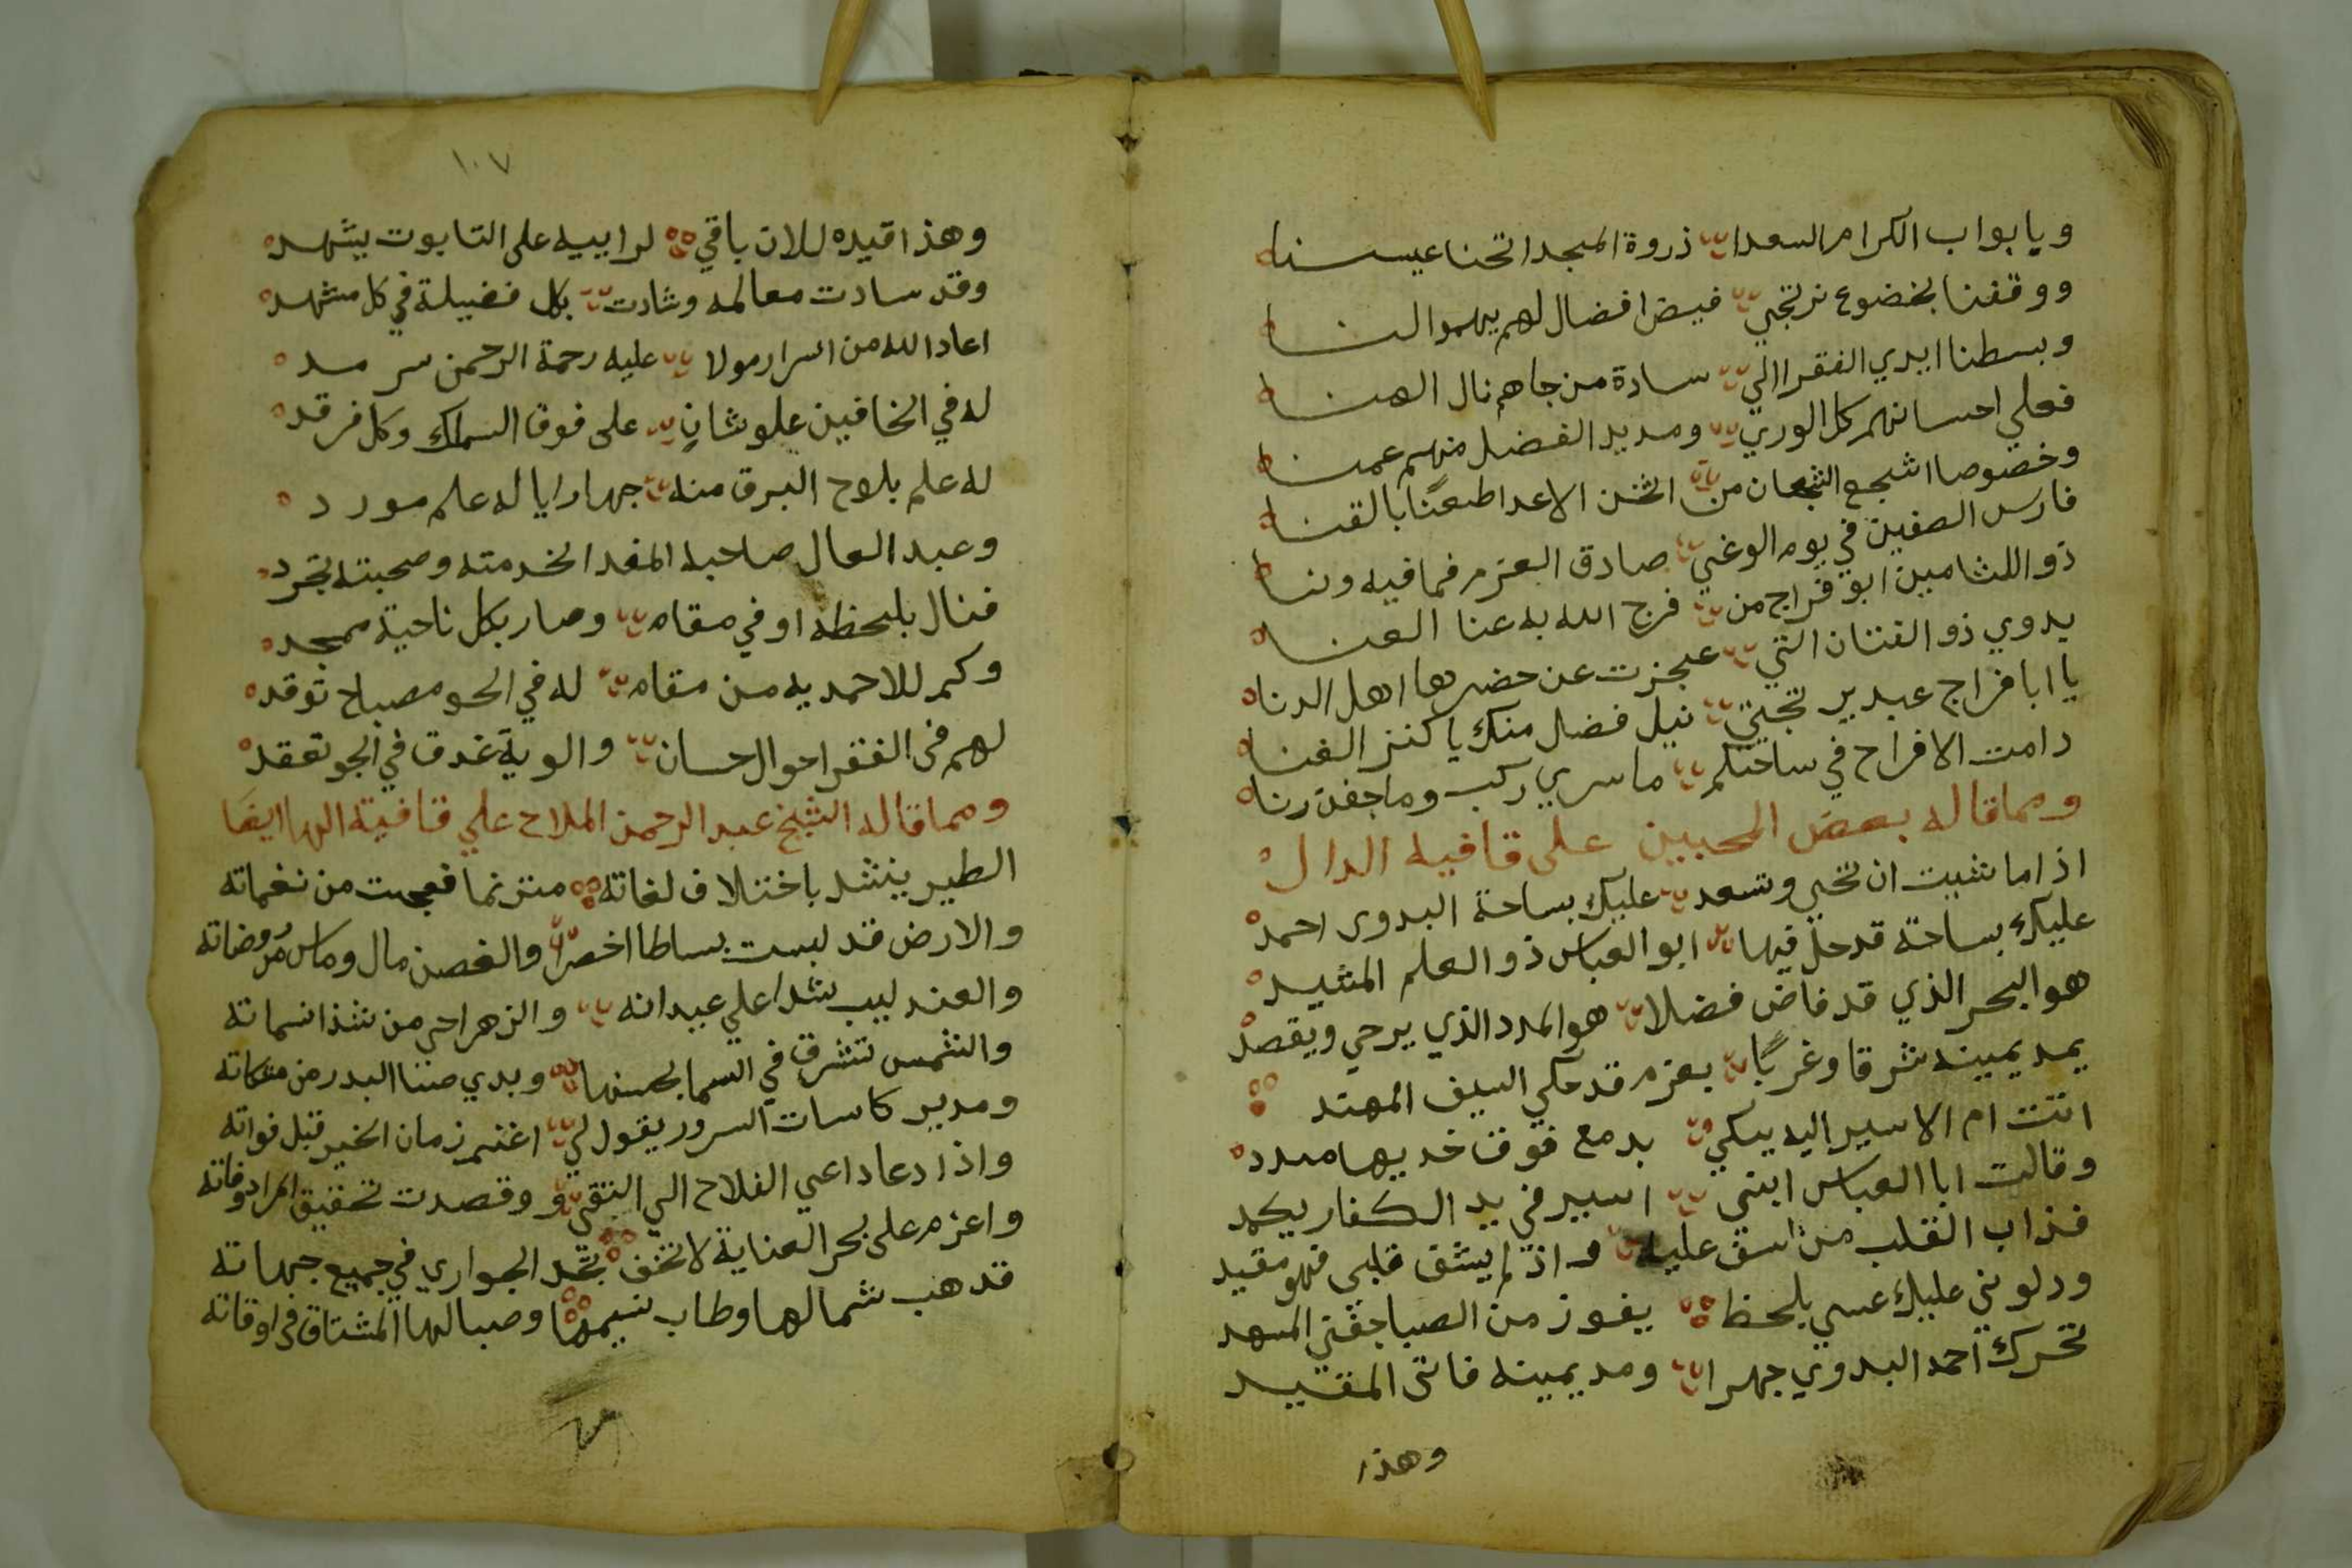 ويا بواب الكرام السعدا ذروة المجد انخنا عيسنا
ووقفنا بخضوع نرتجي فيض افضال لهم يهموا لنا
وبسطنا ايدي الفقرا الي سادة من جاهم نال الهنا
فعلي احسانهم كل الوري ومديد الفضل منهم عمنا
وخصوصا اشجع الشجعان من اثخن الاعدا طعنًا بالقنا
فارس الصفين في يوم الوغي صادق العزم فما فيه ونا
ذو اللثامين ابو فراج من فرج الله به عنا العنا
بدوي ذو الفتنان التي عجزت عن حضرها اهل الدنا
يا ابا فراج عبد يرتجي نيل فضل منك يا كنز الغنا
دامت الافراح في ساحتكم ما سري ركب وما جفن رنا
ومما قاله بعض المحبين علي قافية الدال
اذا ما شيت ان تحي وتسعد عليك بساحة البدوى احمد
عليك بساحة قد حل فيها ابو العباس ذو العلم المشيد
هو البحر الذي قد فاض فضلا هو المدد الذي يرجي ويقصد
يمد يمينه شرقا وغربًا بعزم قد حكي السيف المهند
اتت ام الاسير اليه تبكي بدمع فوق خديها مبدد
وقالت ابا العباس ابني اسير في يد الكفار يكمد
فذاب القلب من اسف عليه اذ لم يشق قلبي فهو مقيد
ودلوني عليك عسي بلحظ يفوز من الصبا جفني المسهد
تحرك احمد البدوي جهرا ومد يمينه فاتى المقيد
وهذا
١٠٧
وهذا قيده للان باقي لراييه على التابوت يشهد
وقد سادت معالمه وشادت بكل فضيلة في كل مشهد
اعاد الله من اسرار مولا عليه رحمة الرحمن سرمد
له في الخافين علو شانٍ على فوق السماك وكل فرقد
له علم بلوح البرق منه جهارا يا له علم مورد
وعبد العال صاحبه المفدا لخدمته وصحبته تجرد
فنال بلحظه اوفي مقام وصار بكل ناحية ممجد
وكم للاحمديه من مقام له في الحو مصباح توقد
لهم في الفقر احوال حسان والوية غدت في الجو تعقد
ومما قاله الشيخ عبد الرحمن الملاح علي قافية الها ايضا
الطير ينشد باختلاف لغاته مترنما فعجبت من نغماته
والارض قد لبست بساطا اخضرا والغصن مال وماس من روضاته
والعندليب شدا علي عيدانه والزهر احي من شذا نسماته
والشمس تشرق في السما بحسنها وبدي سنا البدر من مشكاته
ومدير كاسات السرور يقول لي اغنم زمان الخير قبل فواته
واذا دعا داعي الفلاح الي التقي وقصدت تحقيق المراد وفاته
واعزم على بحر العناية لا تخف تجد الجواري في جميع جهاته
قد هب شمالها وطاب نسيمها وصبا لها المشتاق في اوقاته